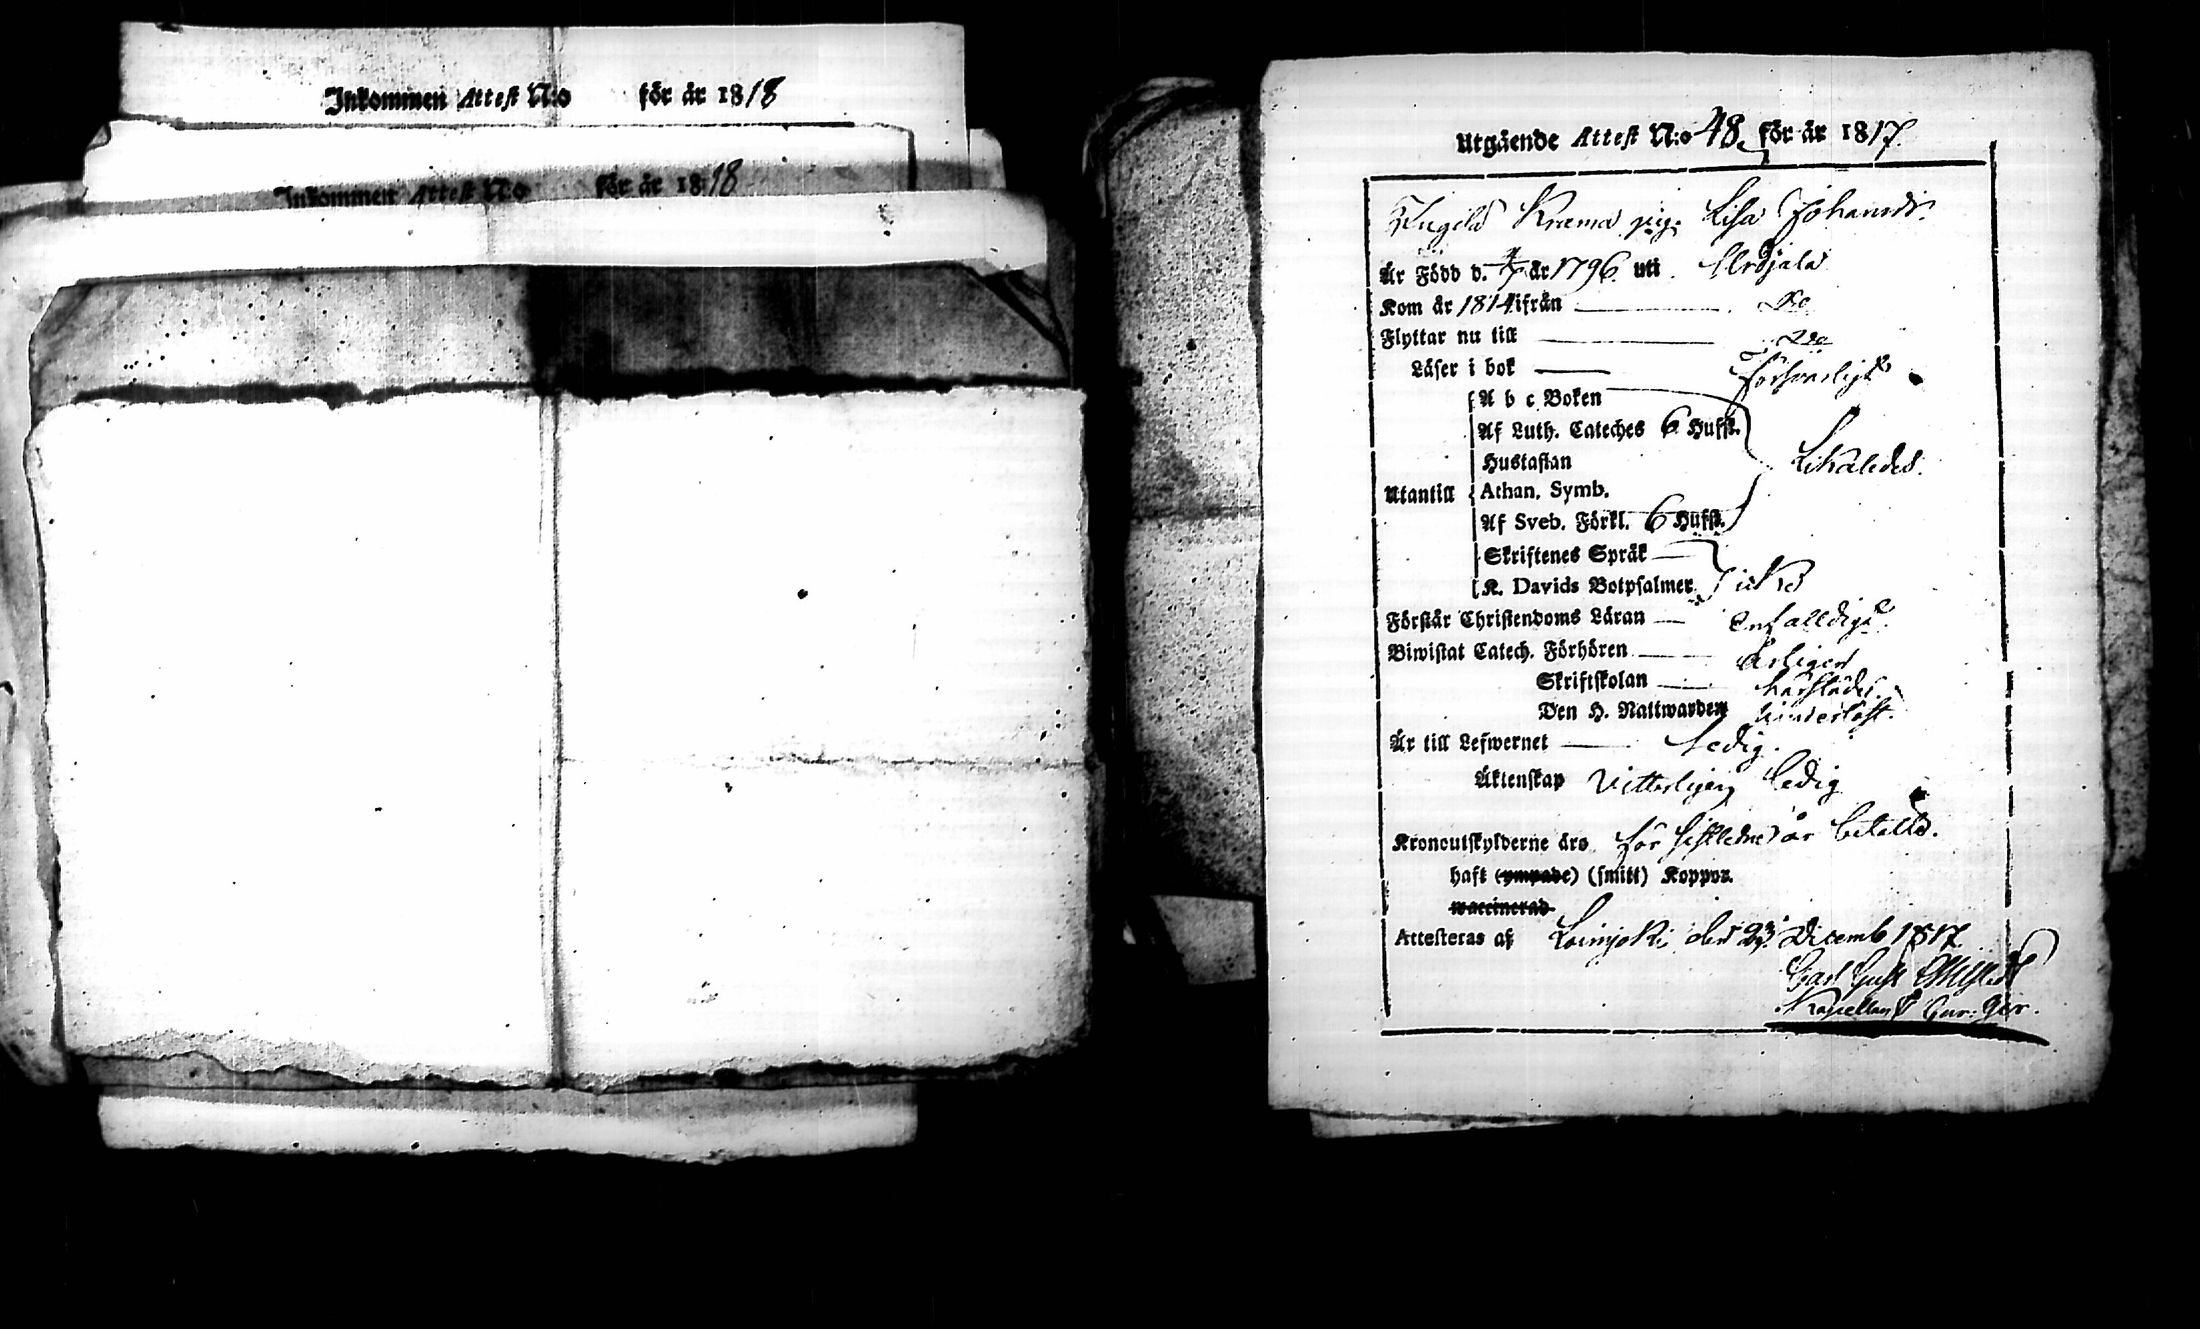 Inkommen Attest N:o för år 1818
Inkommen Attest N:o för år 1818
Utgående Attest N:o 48. för år 1817.
Krama pig. Lisa Johansdr.
År Född d. 4/7 år 1796. uti Urdjala
Kom år 1814 ifrån Do
Flyttar nu till Do
Läser i bok Försvarligt
A b c Boken
Af Luth. Cateches 6 Hufst.
Hustaflan Likaledes.
Utantill Athan. Symb.
Af Sveb. Förkl. 6 Hufst.
Skriftenes Språk
K. Davids Botpsalmer icke
Förstår Christendoms Läran enfalldigt.
Biwistat Catech. Förhören årligen
Skriftskolan härstädes.
Den H. Nattwarden
År till Lefwernet ledig.
Äktenskap Vitterligen ledig
Kronoutskylderne äro för sistledne år betalte.
haft (ympade) (smitt) Koppor.
waccinerad
Attesteras af Loimjoki den 23 Decemb 1817
Carl Gust
Kapellan